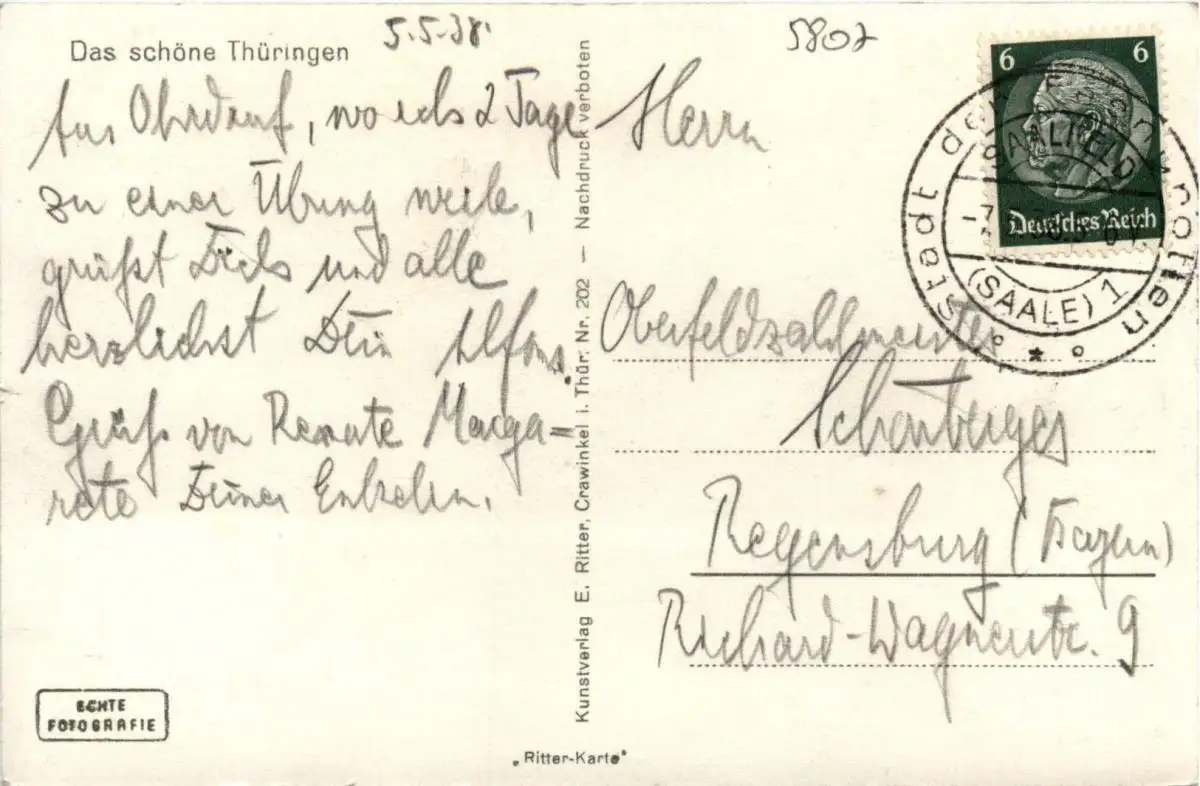 Das schöne Thüringen
5.5.38
Aus Ohrdruf, wo ich 2 Tage
zu einer Übung weile,
grüßt Dich und alle
herzlichst Dein Alfons.
Gruß von Renate Marga=
rete Deiner Enkelin.
ECHTE
FOTOGRAFIE
Kunstverlag E. Ritter, Crawinkel i. Thür. Nr. 202 – Nachdruck verboten
„Ritter-Karte“
5807
6 6
Deutsches Reich
Stadt der Feengrotten
SAALFELD
(SAALE) 1
Herrn
Oberfeldzahlmeister
Schönberger
Regensburg (Bayern)
Richard-Wagnerstr. 9